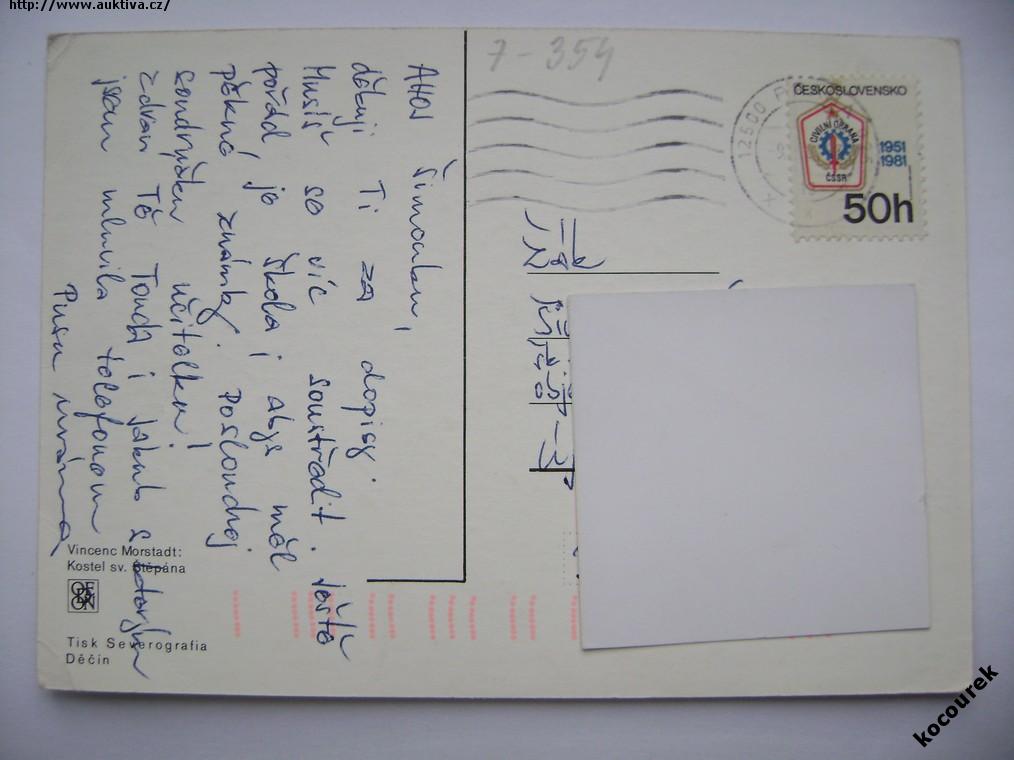 http://www.auktiva.cz/
7-354
ČESKOSLOVENSKO
CIVILNÍ OBRANA
ČSSR
1951
1981
50h
12500
AHOJ Šimonku,
děkuji Ti za dopisy.
Musíš se víc soustředit. Ještě
pořád je škola i abys měl
pěkné známky. Poslouchej
soudružku učitelku!
zdraví Tě Tonda i Jakub s
jsem mluvila telefonem
Pusu máma
Vincenc Morstadt:
Kostel sv. Štěpána
ODEON
Tisk Severografia
Děčín
kocourek